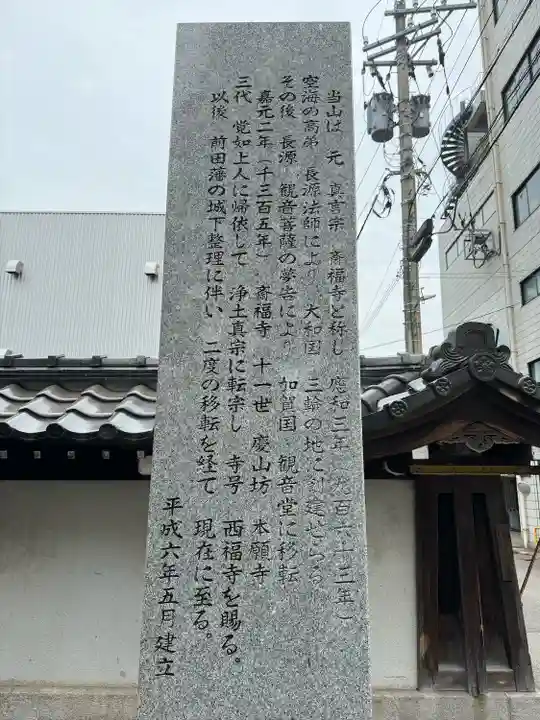 当山は 元 真言宗 斎福寺と称し 應和三年(九百六十三年)
空海の高弟 長源法師により 大和国 三輪の地に創建せらる
その後 長源 観音菩薩の夢告により 加賀国 観音堂に移転
嘉元二年(千三百五年) 斎福寺 十一世 慶山坊 本願寺
三代 覚如上人に帰依して 浄土真宗に転宗し 寺号 西福寺を賜る。
以後 前田藩の城下整理に伴い 二度の移転を経て 現在に至る。
平成六年五月建立